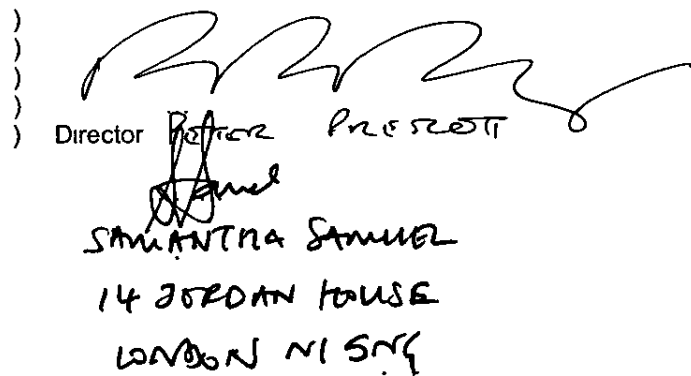 )
)
)
)
) Director PETER PRESCOTT
SAMANTHA SAMUEL
14 JORDAN HOUSE
LONDON N1 5NG